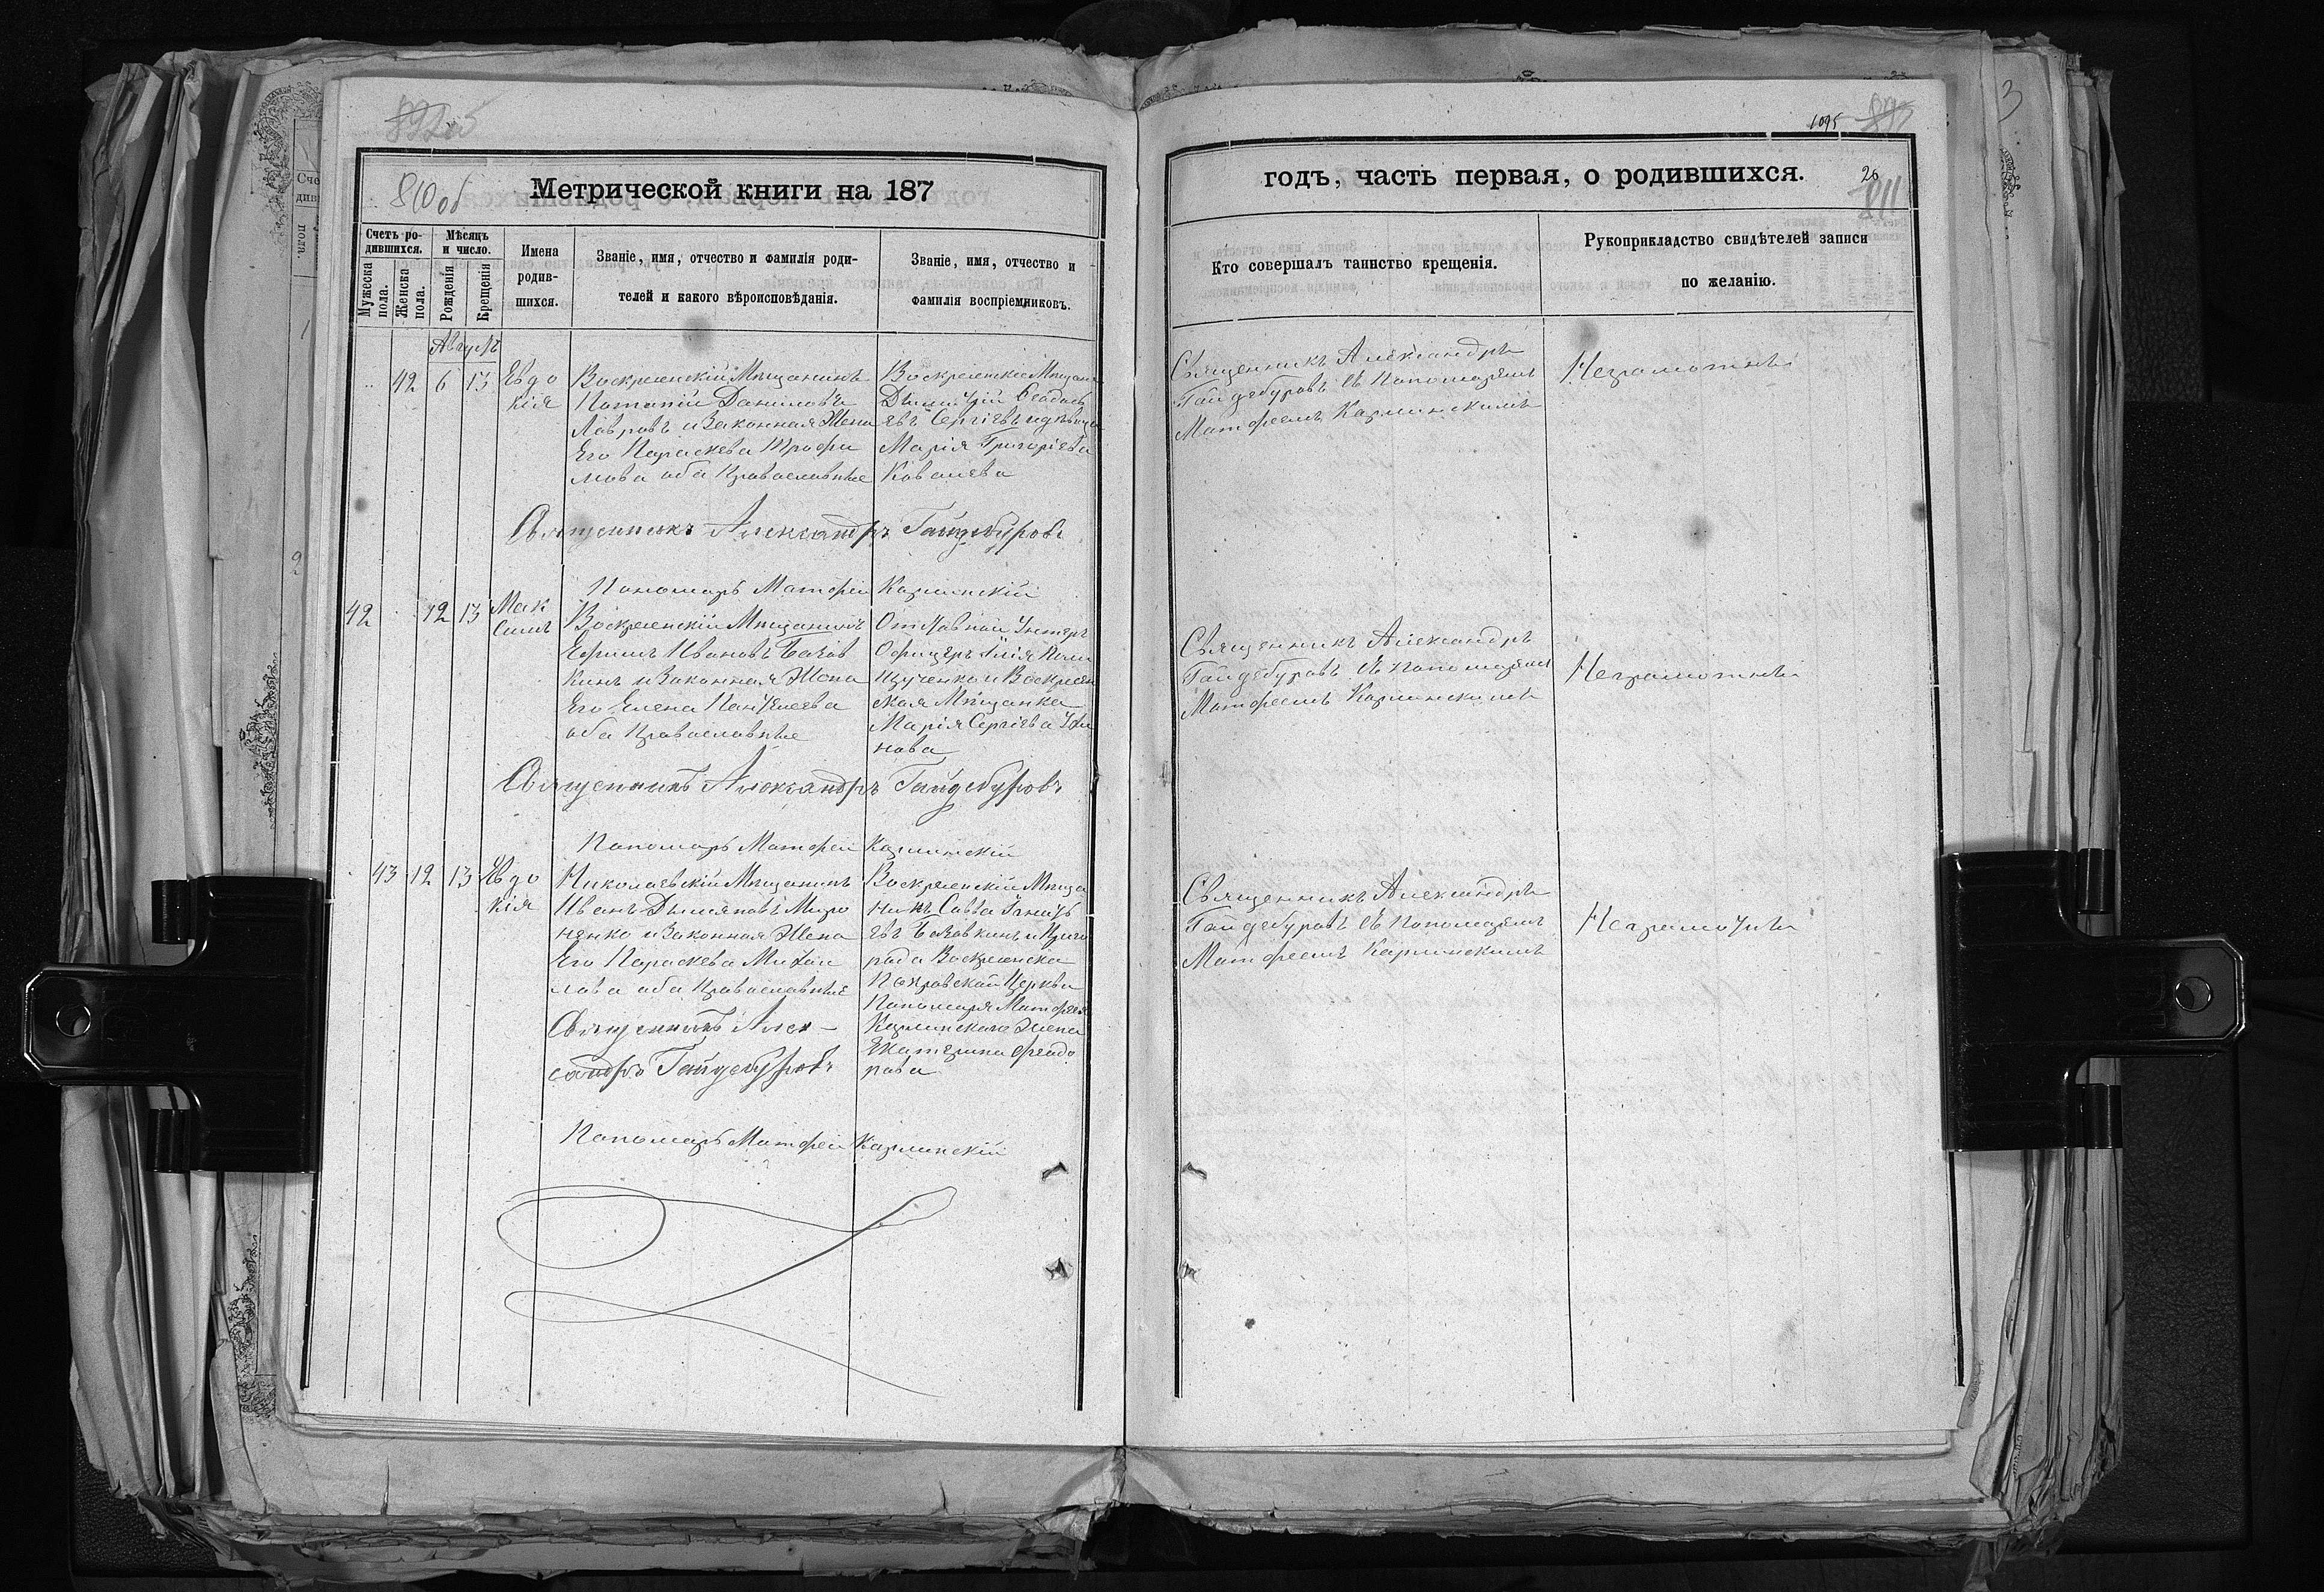 892об
810об
Метрической книги на 187
Счетъ ро-
дившихся.
Мѣсяцъ
и число.
Мужеска
пола.
Женска
пола.
Рожденія
Крещенія
Имена
родив-
шихся.
Званіе, имя, отчество и фамилія роди-
телей и какого вѣроисповѣданія.
Званіе, имя, отчество и
фамилія воспріемниковъ.
Августъ
42 6 13
Евдо
кія
Воскресенскій Мѣщанинъ
Потапій Даниловъ
Лавровъ и Законная Жена
Его Параскева Трофи
мова оба Православные
Воскресенскіе Мѣщане
Дмитрій
евъ Сергіевъ и дѣвица
Марія Григоріева
Ковалева
Священникъ Александръ Гайдебуровъ
Пономарь Матфей Карминскій
42 12 13
Мак
симъ
Воскресенскій Мѣщанинъ
Ефимъ Ивановъ Базав
кинъ и Законная Жена
Его Елена Пантелеева
оба Православные
Отставной Унтеръ
Офицеръ Илія
и Воскресен
ская Мѣщанка
Марія Сергіева
нова
Священникъ Александръ Гайдебуровъ
Пономарь Матфей Карминскій
43 12 13
Евдо
кія
Николаевскій Мѣщанинъ
Иванъ Демьяновъ Миро
ненко и Законная Жена
Его Параскева Михаи
лова оба Православные
Воскресенскій Мѣща
нинъ Савва Игнать
евъ Базавкинъ и Приго
рода Воскресенска
Покровской Церкви
Пономаря Матфея
Карминскаго Жена
Екатерина Феодо
рова
Священникъ Алек-
сандръ Гайдебуровъ
Пономарь Матфей Карминскій
1095
годъ, часть первая, о родившихся.
26
811
Кто совершалъ таинство крещенія.
Рукоприкладство свидѣтелей записи
по желанію.
Священникъ Александръ
Гайдебуровъ съ Пономаремъ
Матфеемъ Карминскимъ
Неграмотны
Священникъ Александръ
Гайдебуровъ съ Пономаремъ
Матфеемъ Карминскимъ
Неграмотны
Священникъ Александръ
Гайдебуровъ съ Пономаремъ
Матфеемъ Карминскимъ
Неграмотны